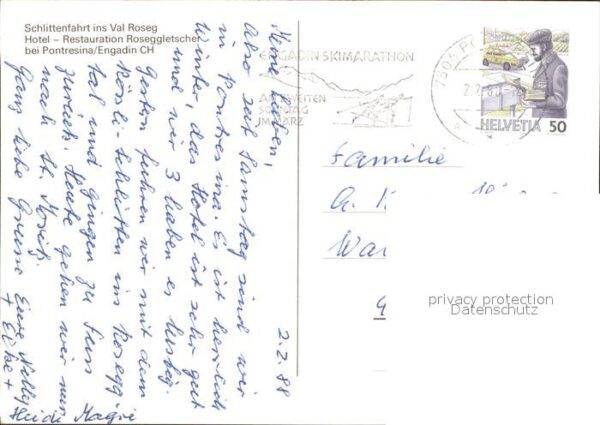 Schlittenfahrt ins Val Roseg
Hotel – Restauration Roseggletscher
bei Pontresina/Engadin CH
Meine Lieben,
Also seit Samstag sind wir
in Pontresina. Es ist herrlich
Winter, das Hotel ist sehr gut
und wir 3 haben es lustig.
Gestern fuhren wir mit dem
Rössli-Schlitten ins Rosegg
tal und gingen zu Fuss
zurück. Heute gehen wir nur
nach St. Moritz.
Ganz liebe Grüsse Eure Nelly
+
Heidi
2.2.88
ENGADIN SKIMARATHON
AM ZWEITEN
SONNTAG
IM MÄRZ
HELVETIA 50
Familie
privacy protection
Datenschutz